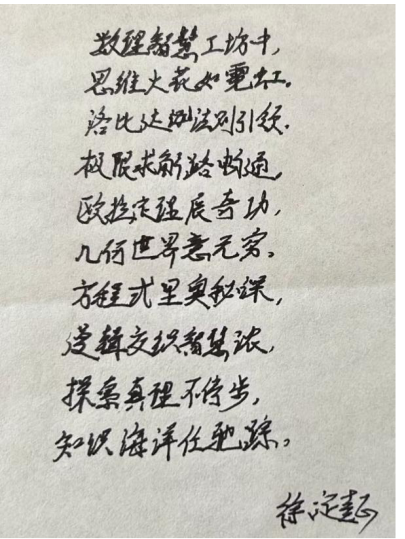 数理智慧工坊中,
思维火花如霓虹。
洛比达洳法则引领.
极限求解路畅通,
欧拉定理展奇功,
几何世界意无穷。
方程式里奥秘深,
逻辑交织智慧浓,
探索真理不停步,
知识海洋任驰踪。
徐